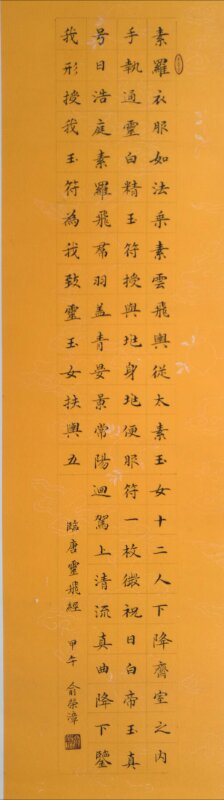 素羅衣服如法乘素雲飛輿從太素玉女十二人下降齋室之內
手執通靈白精玉符授與兆身兆便服符一枚微祝曰白帝玉真
号曰浩庭素羅飛帬羽盖青晏景常陽迴駕上清流真曲降下鑒
我形授我玉符為我致靈玉女扶輿五
臨唐靈飛經
甲午 俞榮漳